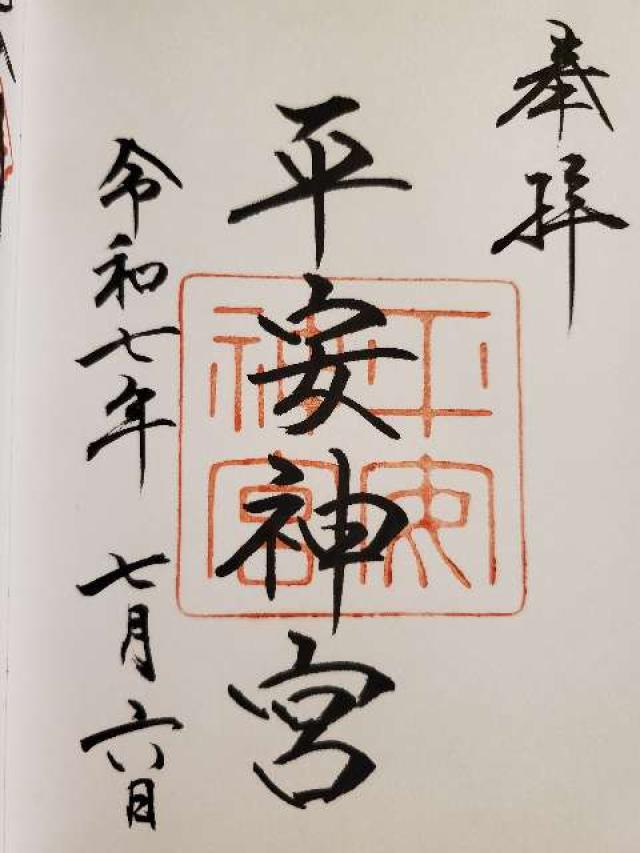 奉拝
平安神宮
平安神宮
令和七年 七月六日